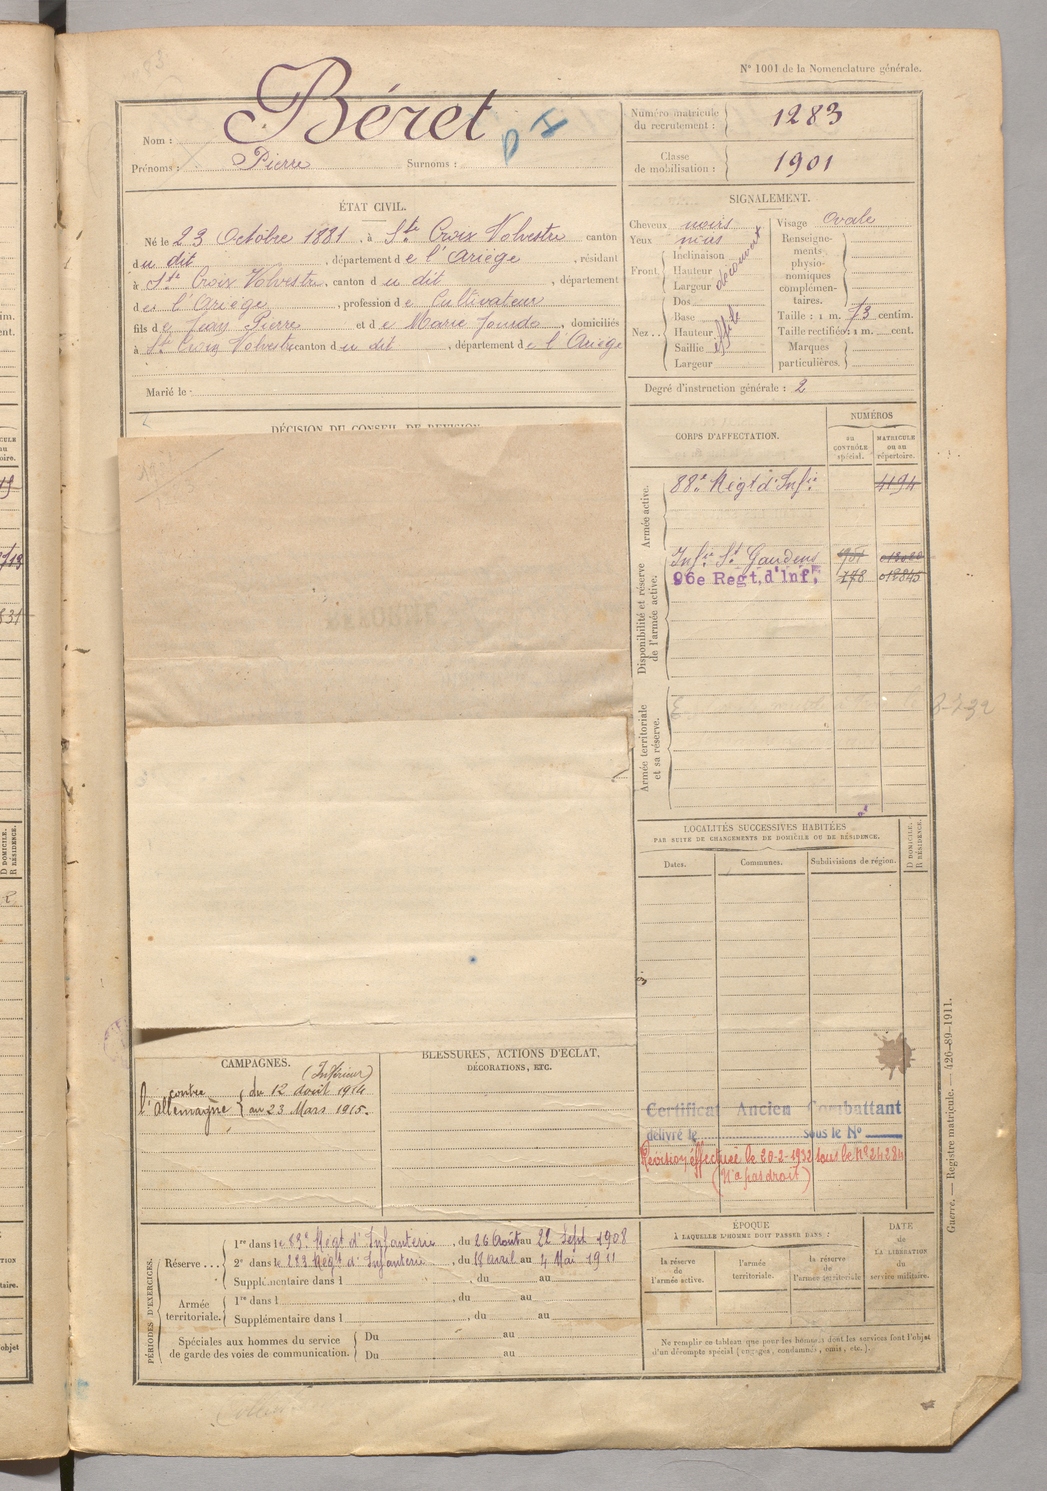 N° 1001 de la Nomenclature générale.
Nom : Béret
Prénoms : Pierre Surnoms :
Numéro matricule du recrutement : 1283
Classe de mobilisation : 1901
ÉTAT CIVIL.
Né le 23 Octobre 1881, à Ste Croix Volvestre canton
du dit, département de l'Ariège, résidant
à Ste Croix Volvestre, canton du dit, département
de l'Ariège, profession de Cultivateur
fils de Jean Pierre et de Marie Jourda, domiciliés
à Ste Croix Volvestre canton du dit, département de l'Ariège
Marié le
SIGNALEMENT.
Cheveux noirs
Yeux
Front
Inclinaison
Hauteur
Largeur
découvert
Nez
Dos
Base
Hauteur
Saillie
Largeur
effilé
Visage Ovale
Renseignements physionomiques complémentaires.
Taille : 1 m. 73 centim.
Taille rectifiée : 1 m. cent.
Marques particulières.
Degré d'instruction générale : 2
DÉCISION DU CONSEIL DE RÉVISION
CORPS D'AFFECTATION.
NUMÉROS
au CONTRÔLE spécial.
MATRICULE ou au répertoire.
Armée active.
88e Régt d'Infie 4194
Disponibilité et réserve de l'armée active.
Infie St Gaudens
96e Regt. d'Infie 178 012845
Armée territoriale et sa réserve.
LOCALITÉS SUCCESSIVES HABITÉES
PAR SUITE DE CHANGEMENTS DE DOMICILE OU DE RÉSIDENCE.
Dates. Communes. Subdivisions de région.
D DOMICILE.
R RÉSIDENCE.
CAMPAGNES.
(Intérieur)
contre l'allemagne du 12 août 1914
au 23 Mars 1915.
BLESSURES, ACTIONS D'ÉCLAT,
DÉCORATIONS, ETC.
Certificat Ancien Combattant
délivré le sous le N°
Révision effectuée le 20-2-1932 sous le N° 24284
(N'a pas droit)
PÉRIODES D'EXERCICES.
Réserve
1re dans le 83e Régt d'Infanterie, du 26 Août au 22 Sept 1908
2e dans le 283 Régt d'Infanterie, du 18 avril au 4 Mai 1911
Supplémentaire dans l , du au
Armée territoriale.
1re dans l , du au
Supplémentaire dans l , du au
Spéciales aux hommes du service de garde des voies de communication.
Du au
Du au
ÉPOQUE
À LAQUELLE L'HOMME DOIT PASSER DANS :
la réserve de l'armée active.
l'armée territoriale.
la réserve de l'armée territoriale
DATE de LA LIBÉRATION du service militaire.
Ne remplir ce tableau que pour les hommes dont les services font l'objet
d'un décompte spécial (engagés, condamnés, omis, etc.).
Guerre. — Registre matricule. — 426-89-1911.